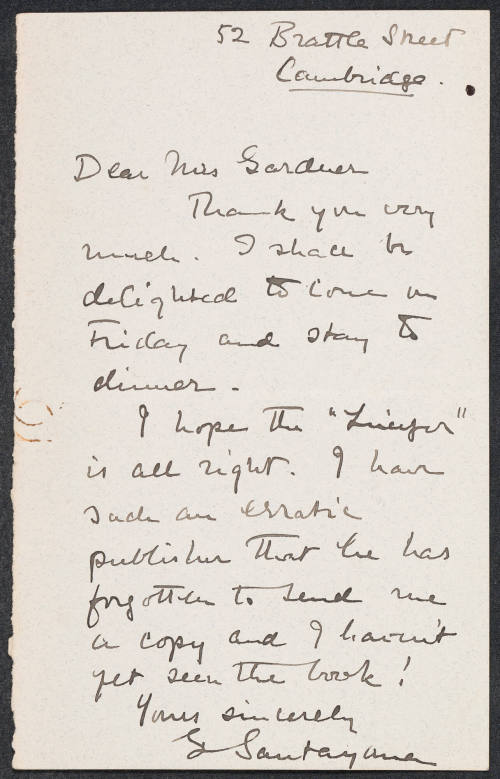 52 Brattle Street
Cambridge.
Dear Mrs Gardner
Thank you very
much. I shall be
delighted to come on
Friday and stay to
dinner.
I hope the "Lucifer"
is all right. I have
such an erratic
publisher that he has
forgotten to send me
a copy and I haven't
yet seen the book!
Yours sincerely
G Santayana